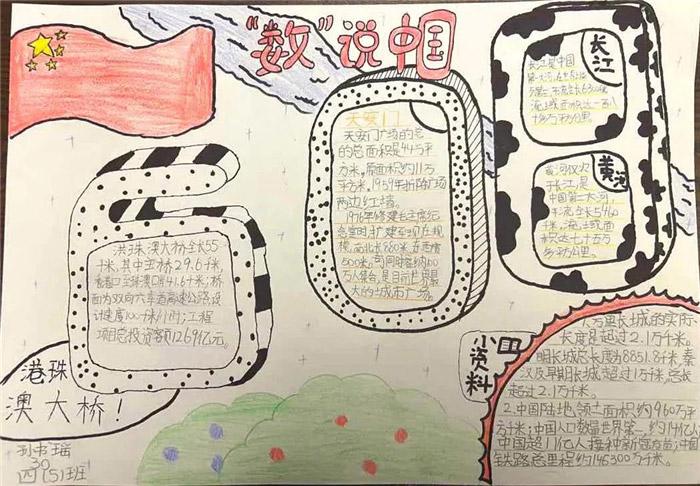 "数"说中国
长江
长江是中国
第一大河,
干流全长6300km
流域面积达一百八
十多万平方公里。
黄河
黄河仅次
于长江,是
中国第二大河,
干流全长5464
千米,流域面
积达七十五万
多平方公里。
天安门
天安门广场的总
的总面积是44万平
方米。原面积约11万
平方米。1959年拆除广场
两边红墙。
1976年修建毛主席纪
念堂时扩建至现在规
模,南北长880米,东西宽
500米,可同时容纳100
万人集会,是目前世界最
大的城市广场。
洪珠澳大桥全长55
千米,其中主桥29.6千米,
香港口岸至珠澳口岸41.6千米;桥
面为双向六车道高速公路,设
计速度100千米/小时;工程
项目总投资额1269亿元。
港珠
澳大桥!
孙书瑶
30
四(5)班
小资料
1.万里长城的实际
长度超过2.1万千米。
明长城总长度为8851.8千米,秦
汉及早期长城超过1万千米,总长
超过2.1万千米。
2.中国陆地领土面积约960万平
方千米;中国人口数量世界第一,约14亿人
中国超11亿人接种新冠疫苗;中国
铁路总里程约146300万千米。